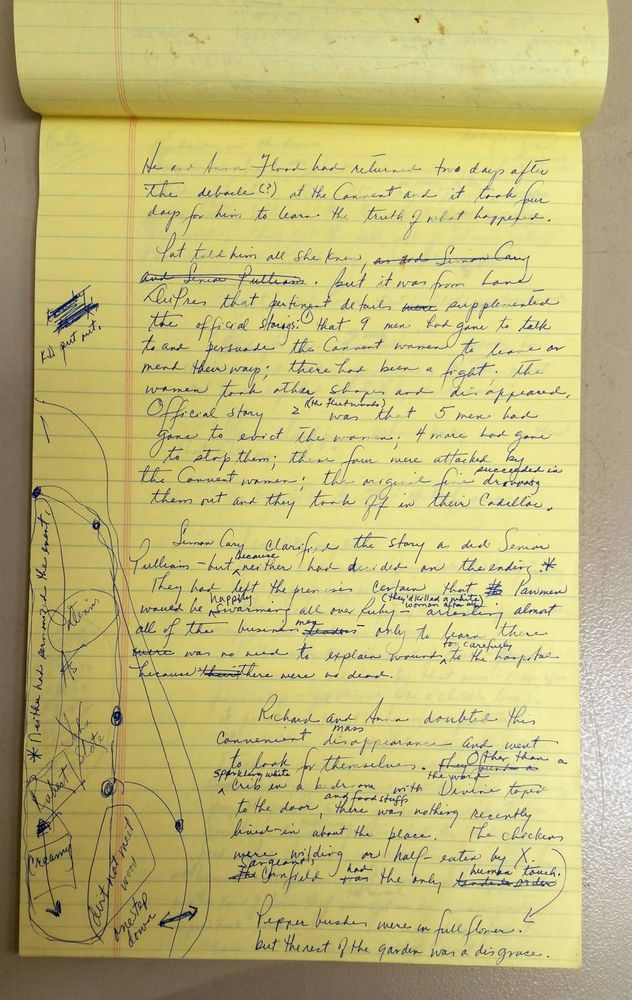 He and Anna Flood had returned two days after
the debacle (?) at the Convent and it took four
days for him to learn the truth of what happened.
Pat told him all she knew, as did Simon Cary
and Senior Pulliam. But it was from Lone
DuPres that pertinent details were supplemented
the official stories: ① that 9 men had gone to talk
to and persuade the Convent women to leave or
mend their ways; there had been a fight. The
women took other shapes and disappeared.
Official story 2 (the Fleetwoods) was that 5 men had
gone to evict the women; 4 more had gone
to stop them; these four were attacked by
the Convent women; the original five succeeded in driving
them out and they took off in their Cadillac.
Simon Cary clarified the story as did Senior
Pulliam - but because neither had decided on the ending *
They had left the premises certain that lawmen
would be happily swarming all over Ruby - (they'd killed a white woman after all) arresting almost
all of the business men leaders - only to learn there
were was no need to explain wounds, to carefully to the hospital
because there were no dead.
Richard and Anna doubted this
convenient mass disappearance and went
to look for themselves. Other than a
sparkling white crib in a bedroom with the word Divine taped
to the door, and foodstuffs there was nothing recently
lived-in about the place. The chickens
were wilding or half-eaten by X.
Cornfield had was the only human touch.
Pepper bushes were in full flower.
but the rest of the garden was a disgrace.
put out.
* Neither had permized the event.
To
state
Creamy
dirt not meet
word
one step
down